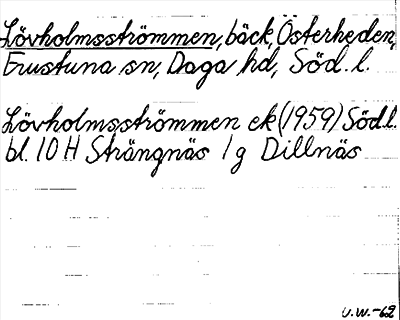 Lövholmsströmmen, bäck, Österheden,
Frustuna sn, Daga hd, Söd.l.
Lövholmsströmmen ek (1959) Söd.l.
bl. 10 H Strängnäs 1 g Dillnäs
U.W.-62